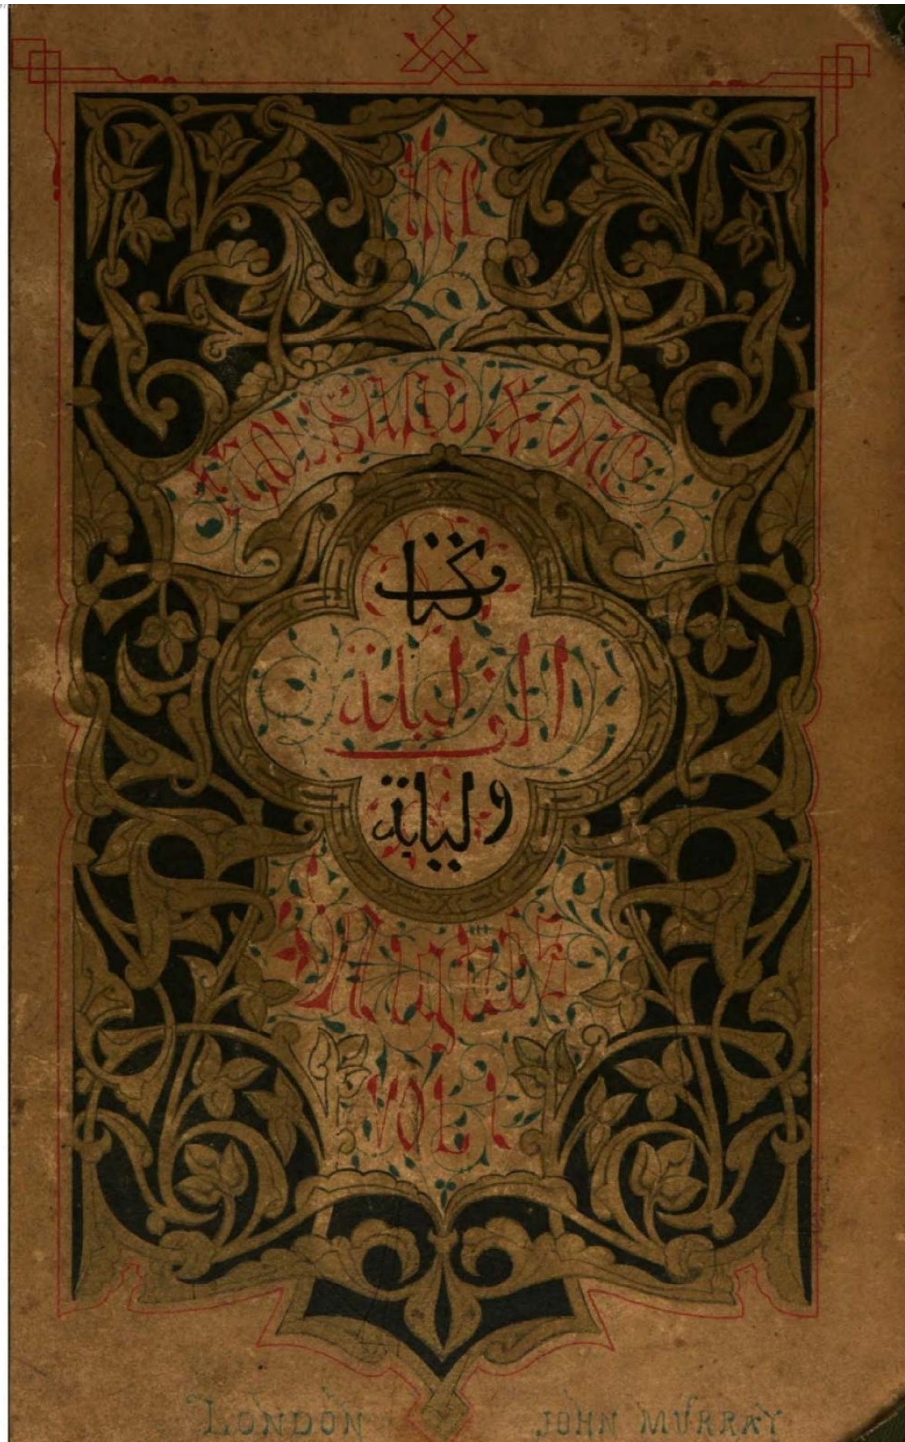 The
Thousand & One
كتاب
الف ليلة
وليلة
Nights
Vol I
LONDON JOHN MURRAY